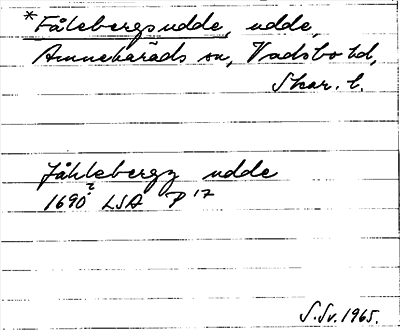 *Fålebergsudde, udde,
Amnehärads sn, Vadsbo hd,
Skar. l.
Fåhlebergz udde
1690? LSA P 17
S.Sv. 1965.